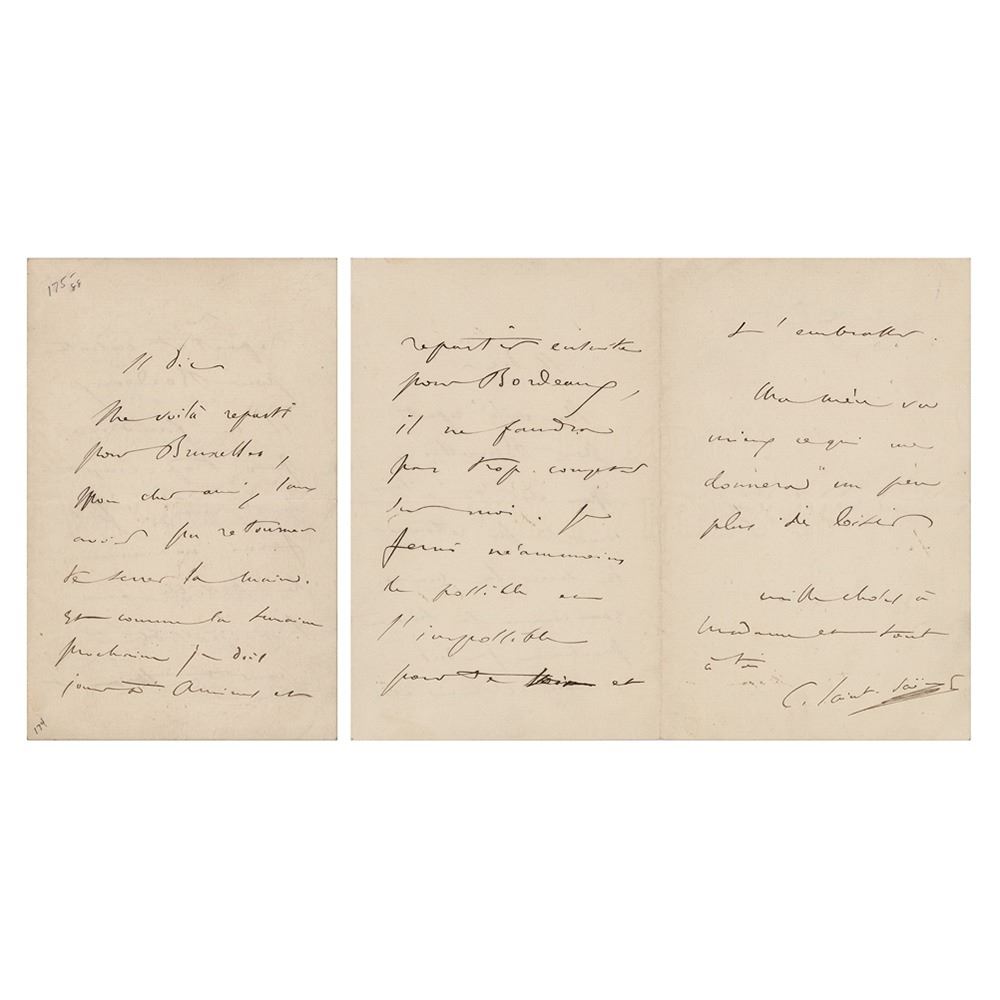 175/88
11 Dic
Me voilà reparti
pour Bruxelles,
Mon cher ami, sans
avoir pu retourner
te serrer la main.
Et comme la semaine
prochaine je dois
jouer à Amiens et
174
repartir ensuite
pour Bordeaux,
il ne faudra
pas trop compter
sur moi. Je
ferai néammoins
le possible et
l'impossible
pour te voir et
t'embrasser.
Ma mère va
mieux ce qui me
donnera un peu
plus de loisir
mille choses à
Madame et tout
à toi
C. Saint-Saëns